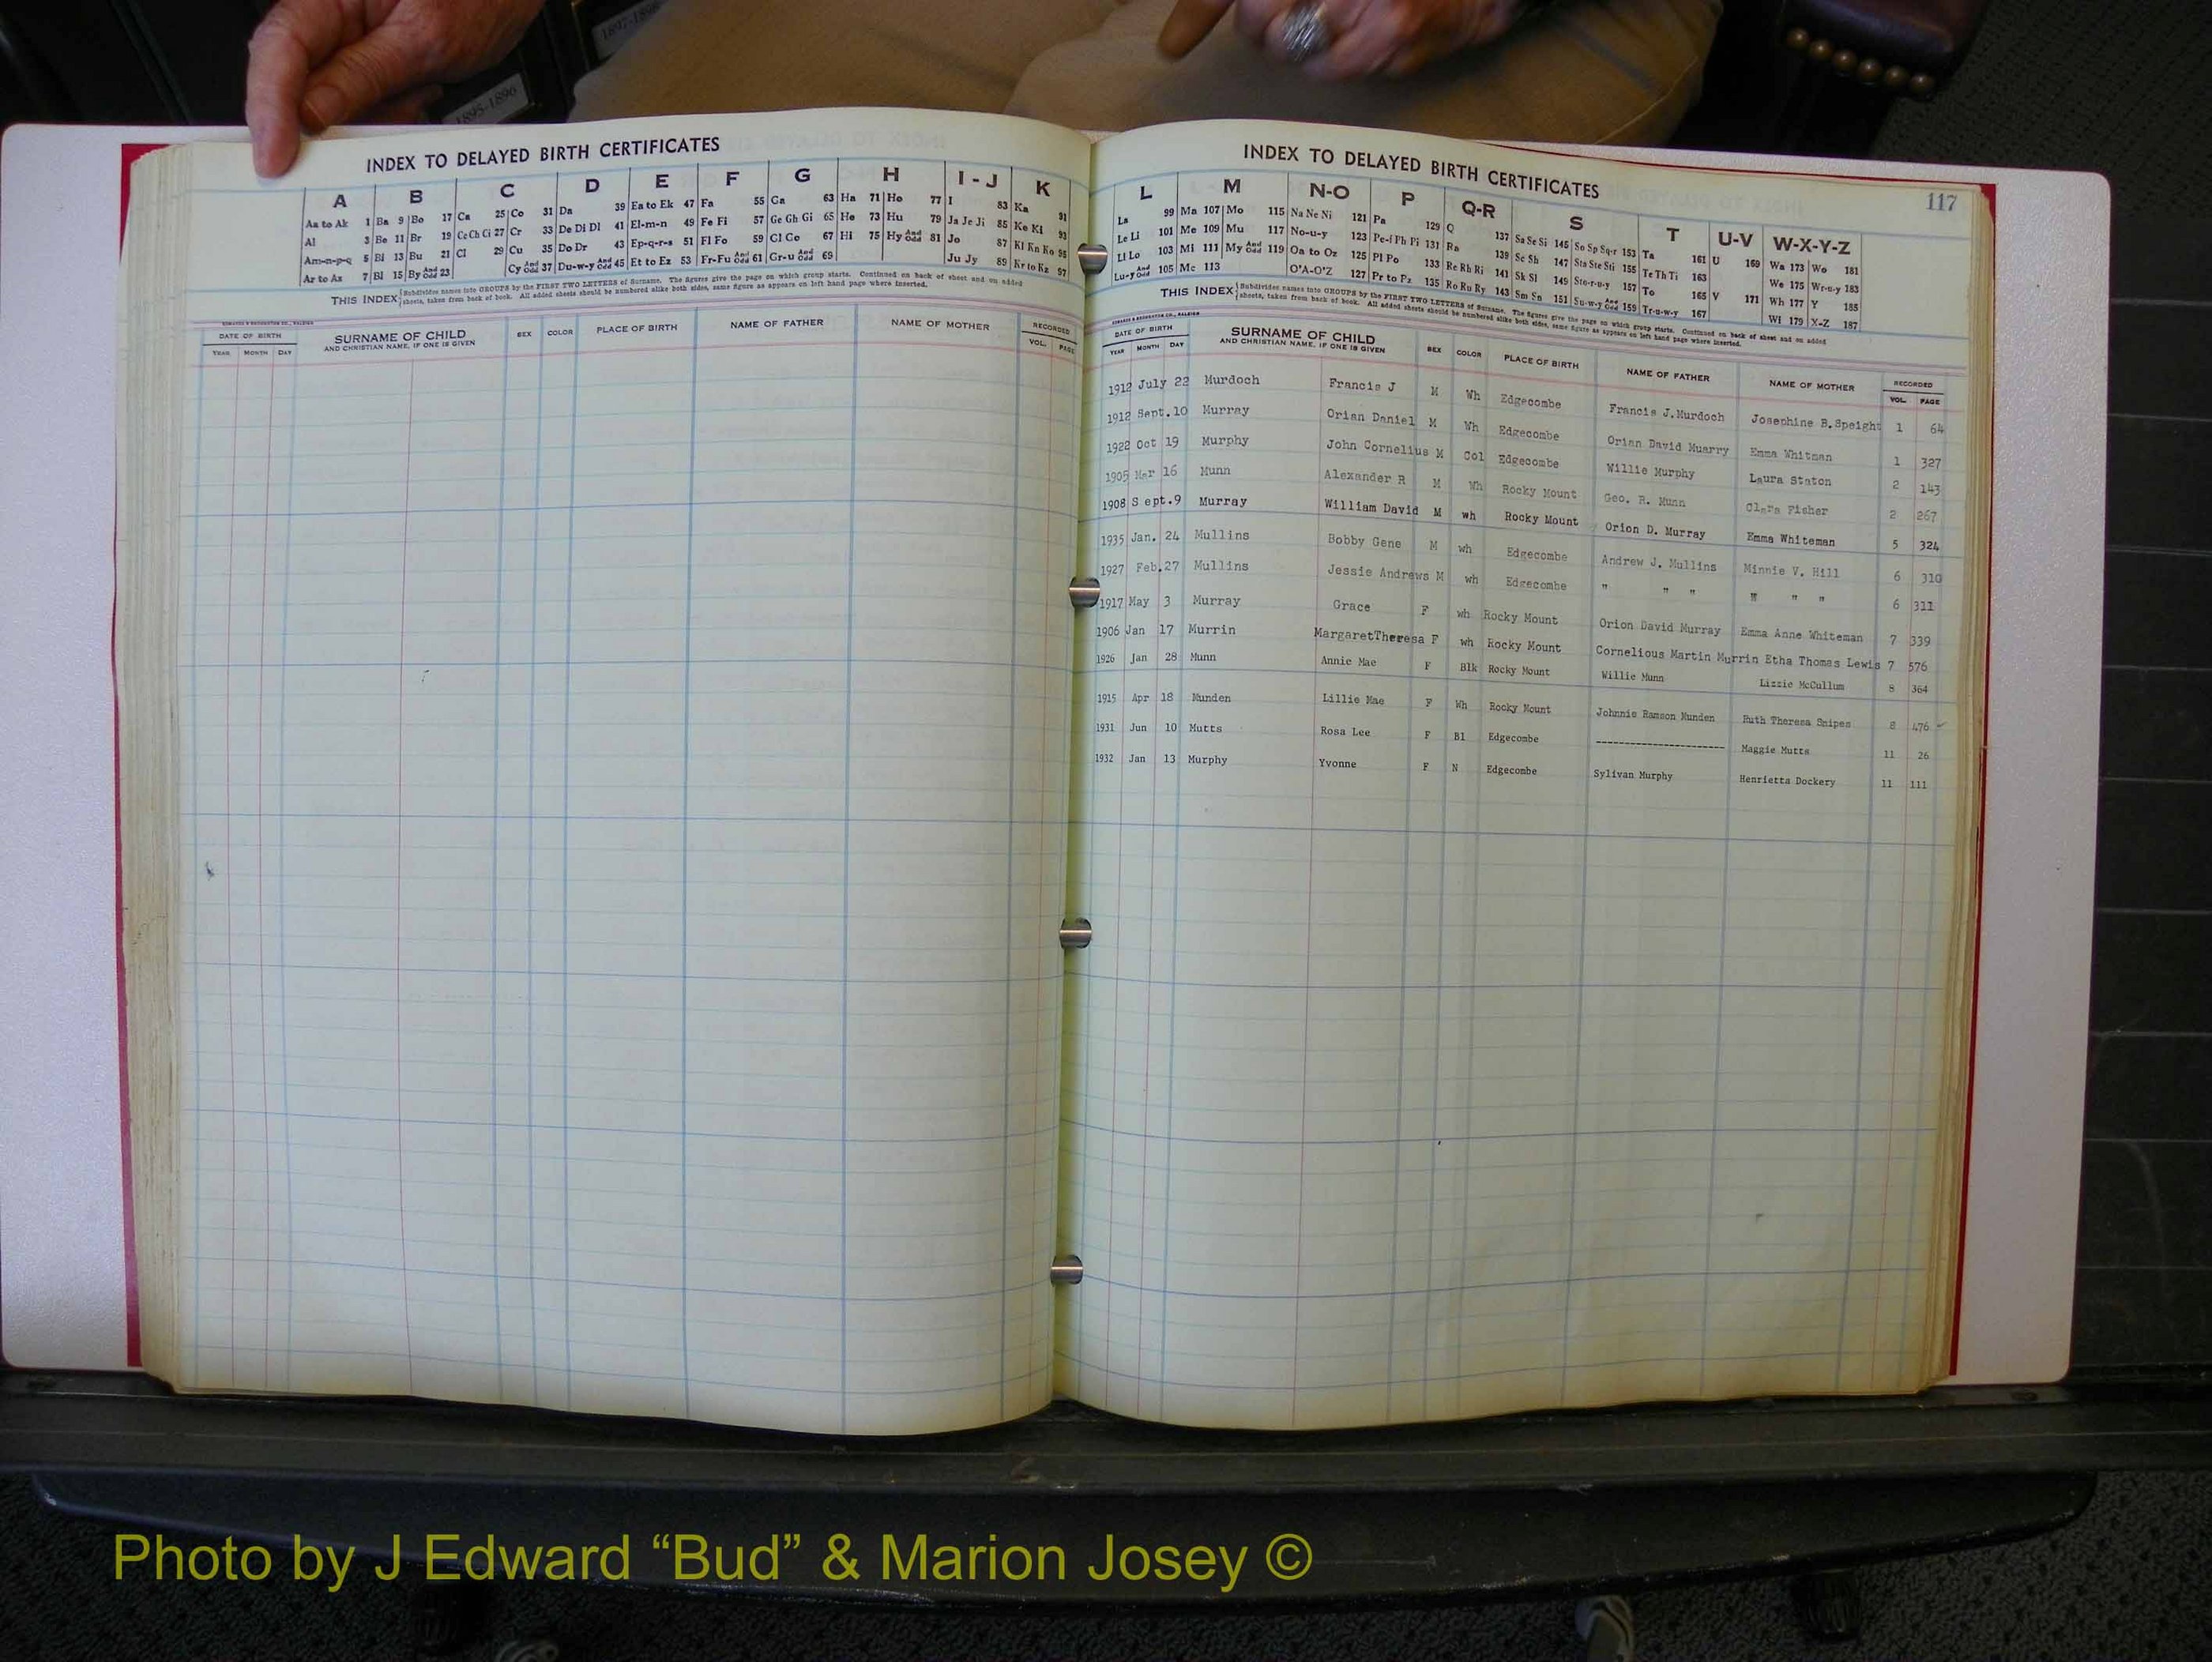 1897-1898
1895-1896
INDEX TO DELAYED BIRTH CERTIFICATES
A B C D E F G H I - J K
Aa to Ak 1 Ba 9 Bo 17 Ca 25 Co 31 Da 39 Ea to Ek 47 Fa 55 Ga 63 Ha 71 Ho 77 I 83 Ka 91
Al 3 Be 11 Br 19 Ce Ch Ci 27 Cr 33 De Di Dl 41 El-m-n 49 Fe Fi 57 Ge Gh Gi 65 He 73 Hu 79 Ja Je Ji 85 Ke Ki 93
Am-n-p-q 5 Bi 13 Bu 21 Cl 29 Cu 35 Do Dr 43 Ep-q-r-s 51 Fl Fo 59 Gl Go 67 Hi 75 Hy And Odd 81 Jo 87 Kl Kn Ko 95
Ar to Az 7 Bl 15 By And Odd 23 Cy And Odd 37 Du-w-y And Odd 45 Et to Ez 53 Fr-Fu And Odd 61 Gr-u And Odd 69 Ju Jy 89 Kr to Kz 97
THIS INDEX Subdivides names into GROUPS by the FIRST TWO LETTERS of Surname. The figures give the page on which group starts. Continued on back of sheet and on added
sheets, taken from back of book. All added sheets should be numbered alike both sides, same figure as appears on left hand page where inserted.
DATE OF BIRTH SURNAME OF CHILD SEX COLOR PLACE OF BIRTH NAME OF FATHER NAME OF MOTHER RECORDED
YEAR MONTH DAY AND CHRISTIAN NAME, IF ONE IS GIVEN VOL. PAGE
INDEX TO DELAYED BIRTH CERTIFICATES
117
L M N-O P Q-R S T U-V W-X-Y-Z
La 99 Ma 107 Mo 115 Na Ne Ni 121 Pa 129 Q 137 Sa Se Si 145 So Sp Sq-r 153 Ta 161 U 169 Wa 173 Wo 181
Le Li 101 Me 109 Mu 117 No-u-y 123 Pe-i Ph Pi 131 Ra 139 Sc Sh 147 Sta Ste Sti 155 Te Th Ti 163 We 175 Wr-u-y 183
Ll Lo 103 Mi 111 My And Odd 119 Oa to Oz 125 Pl Po 133 Re Rh Ri 141 Sk Sl 149 Sto-r-u-y 157 To 165 V 171 Wh 177 Y 185
Lu-y And Odd 105 Mc 113 O'A-O'Z 127 Pr to Pz 135 Ro Ru Ry 143 Sm Sn 151 Su-w-y And Odd 159 Tr-u-w-y 167 Wi 179 X-Z 187
THIS INDEX Subdivides names into GROUPS by the FIRST TWO LETTERS of Surname. The figures give the page on which group starts. Continued on back of sheet and on added
sheets, taken from back of book. All added sheets should be numbered alike both sides, same figure as appears on left hand page where inserted.
DATE OF BIRTH SURNAME OF CHILD SEX COLOR PLACE OF BIRTH NAME OF FATHER NAME OF MOTHER RECORDED
YEAR MONTH DAY AND CHRISTIAN NAME, IF ONE IS GIVEN VOL. PAGE
1912 July 22 Murdoch Francis J M Wh Edgecombe Francis J.Murdoch Josephine B.Speight 1 64
1912 Sept.10 Murray Orian Daniel M Wh Edgecombe Orian David Muarry Emma Whitman 1 327
1922 Oct 19 Murphy John Cornelius M Col Edgecombe Willie Murphy Laura Staton 2 143
1905 Mar 16 Munn Alexander R M Wh Rocky Mount Geo. R. Munn Clara Fisher 2 267
1908 S ept.9 Murray William David M wh Rocky Mount Orion D. Murray Emma Whiteman 5 324
1935 Jan. 24 Mullins Bobby Gene M wh Edgecombe Andrew J. Mullins Minnie V. Hill 6 310
1927 Feb.27 Mullins Jessie Andrews M wh Edgecombe " " " " " " 6 311
1917 May 3 Murray Grace F wh Rocky Mount Orion David Murray Emma Anne Whiteman 7 339
1906 Jan 17 Murrin MargaretTheresa F wh Rocky Mount Cornelious Martin Murrin Etha Thomas Lewis 7 576
1926 Jan 28 Munn Annie Mae F Blk Rocky Mount Willie Munn Lizzie McCullum 8 364
1915 Apr 18 Munden Lillie Mae F Wh Rocky Mount Johnnie Ramson Munden Ruth Theresa Snipes 8 476
1931 Jun 10 Mutts Rosa Lee F Bl Edgecombe ---------------------- Maggie Mutts 11 26
1932 Jan 13 Murphy Yvonne F N Edgecombe Sylivan Murphy Henrietta Dockery 11 111
Photo by J Edward “Bud” & Marion Josey ©